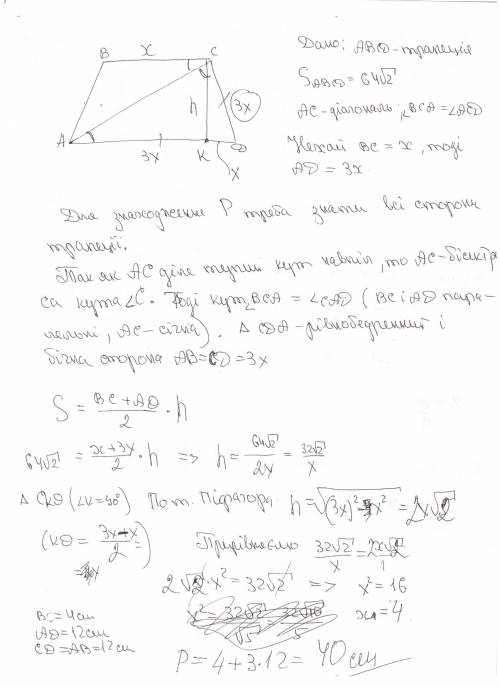 B x C
h 3x
A 3x K D
x
Дано: ABCD - трапеція
S ABCD = 64√2
AC - діагональ, ∠BCA = ∠ACD
Нехай BC = x, тоді
AD = 3x
Для знаходження P треба знати всі сторони
трапеції.
Так як AC діле тупий кут навпіл, то AC - бісектри
са кута ∠C. Тоді кут ∠BCA = ∠CAD (BC і AD пара-
лельні, AC - січна). Δ CDA - рівнобедренний і
бічна сторона AB = CD = 3x
S = (BC + AD)/2 · h
64√2 = (x+3x)/2 · h => h = 64√2/2x = 32√2/x
Δ CKD (∠K = 90°) По т. Піфагора h = √((3x)² - x²) = 2x√2
(KD = (3x - x)/2 =
= x)
Прирівнюємо 32√2/x = 2x√2/1
2√2 · x² = 32√2 => x² = 16
x = 4
BC = 4 cm
AD = 12 cm
CD = AB = 12 cm
P = 4 + 3·12 = 40 cm